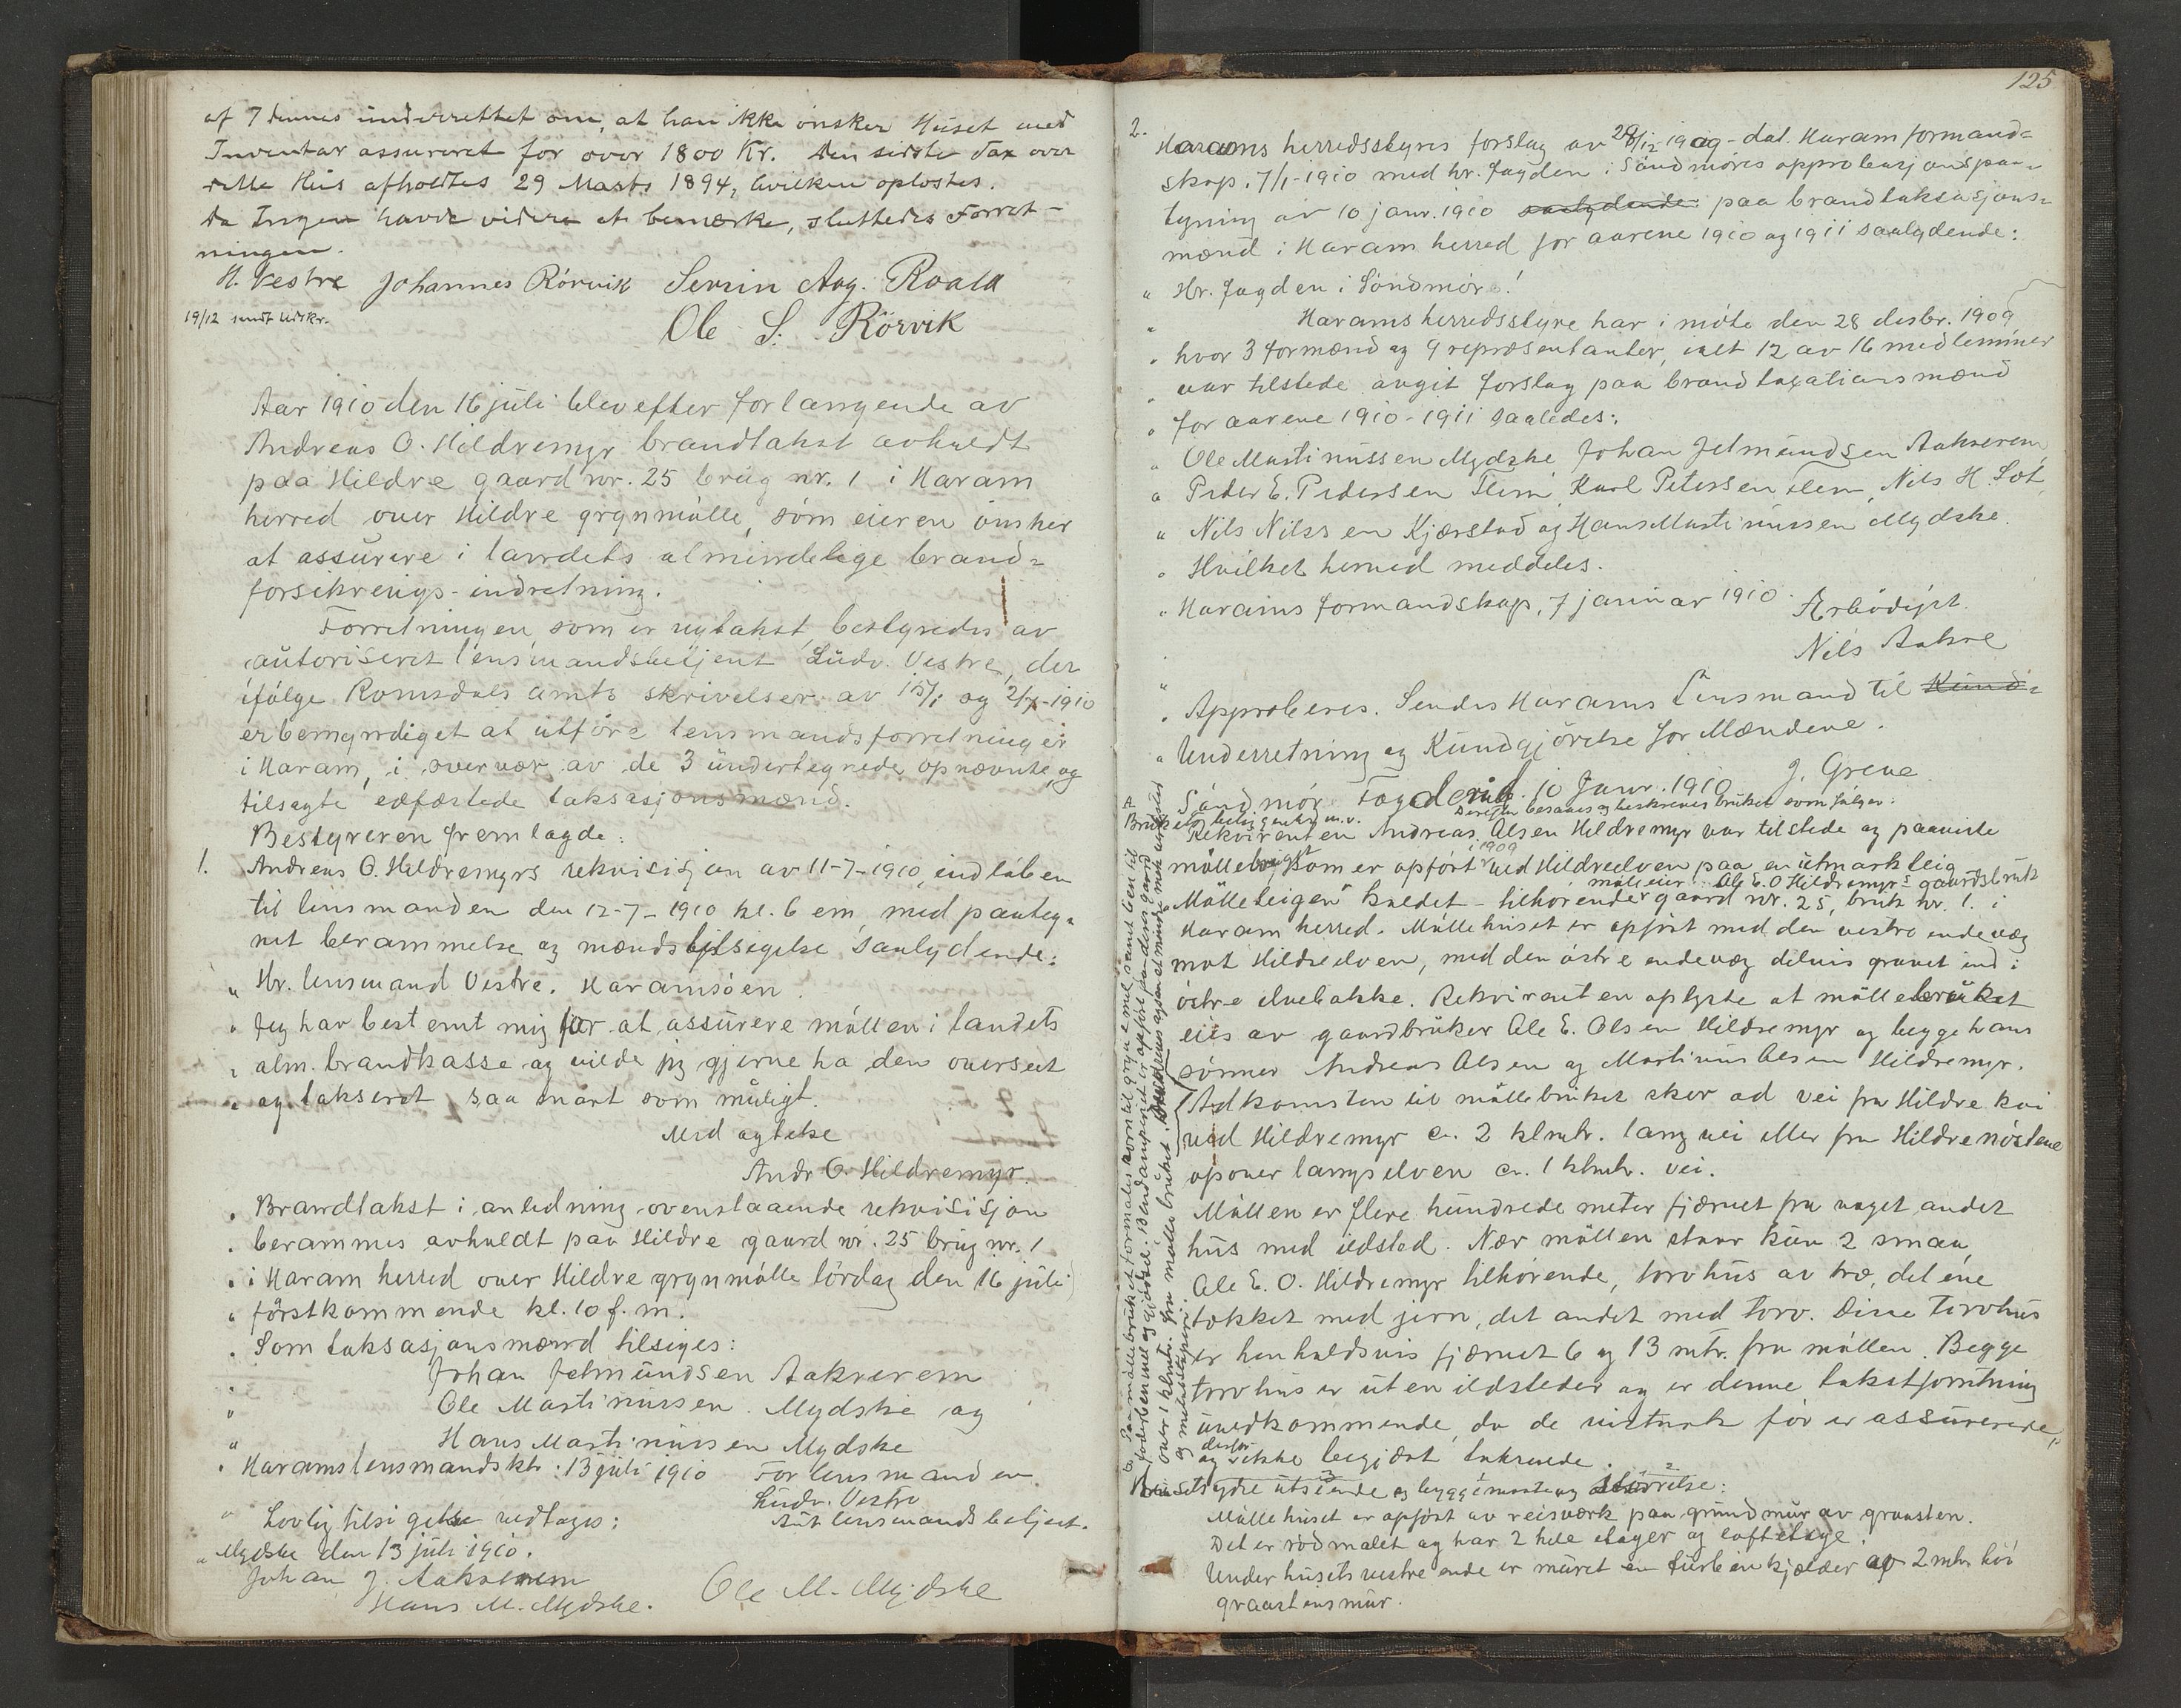 af 7 dennes underrettet om, at han ikke ønsker Huset med
Inventar assureret for over 1800 Kr. Den sidste Tax over
dette Hus afholdtes 29 Marts 1894, hvilken oplæstes.
Da Ingen havde videre at bemærke, sluttedes Forret-
ningen.
H. Vestre Johannes Rörvik Sevrin Aug. Roald
19/12 sendt Udskr.
Ole S. Rörvik
Aar 1910 den 16 juli blev efter forlangende av
Andreas O. Hildremyr brandtakst avholdt
paa Hildre gaard nr. 25 brug nr. 1 i Haram
herred over Hildre grynmølle, som eieren ønsker
at assurere i landets almindelige brand=
forsikrings-indretning.
Forretningen, som er nytakst, bestyredes av
autoriseret lensmandsbetjent Ludv. Vestre, der
ifølge Romsdals amts skrivelser av 15/1 og 2/7-1910
er bemyndiget at utføre lensmandsforretninger
i Haram, i overvær av de 3 undertegnede opnævnte og
tilsagte edfæstede taksasjonsmænd.
Bestyreren fremlagde:
1. Andreas O. Hildremyrs rekvisisjon av 11-7-1910, indløben
til lensmanden den 12-7-1910 kl. 6 em, med paateg=
net berammelse og mændstilsigelse saalydende:
" Hr. lensmand Vestre. Haramsøen.
" Jeg har bestemt mig for at assurere møllen i landets
" alm. brandkasse og vilde jeg gjerne ha den overseet
" og takseret saa snart som muligt.
Med agtelse
Andr O. Hildremyr.
" Brandtakst i anledning ovenstaaende rekvisisjon
" berammes avholdt paa Hildre gaard nr. 25 brug nr. 1
" i Haram herred over Hildre grynmølle lördag den 16 juli
" förstkommende kl. 10 f. m.
" Som taksasjonsmænd tilsiges:
" Johan Jetmundsen Aakrerem
" Ole Martinussen Mydske og
" Hans Martinussen Mydske
" Harams lensmandsktr. 13 juli 1910 For lensmanden
Ludv. Vestre
Aut lensmandsbetjent.
" Lovlig tilsigelse vedtages:
" Mydske den 13 juli 1910.
Johan J. Aakrerem
Hans M. Mydske. Ole M. Mydske
125
2. Harams herredsstyres forslag av 28/12 1909 - dat. Haram formand=
skap. 7/1-1910 med hr. fogden i Söndmöres approbasjonspaa=
tegning av 10 janr. 1910 saalydende: paa brandtaksasjons=
mænd i Haram herred for aarene 1910 og 1911 saalydende:
" Hr. fogden i Söndmör!
" Harams herredsstyre har i møte den 28 desbr. 1909
" hvor 3 formænd og 9 repræsentanter, ialt 12 av 16 medlemmer
" var tilstede avgit forslag paa brandtaxationsmænd
" for aarene 1910-1911 saaledes:
" Ole Martinussen Mydske, Johan Jetmundsen Aakrerem,
" Peder E. Pedersen Flem, Karl Petersen Flem, Nils H. Løt,
" Nils Nilssen Kjærstad og Hans Martinussen Mydske.
" Hvilket herved meddeles.
" Harams formandskap, 7 januar 1910. Ærbödigst
Nils Aakre
" Approberes. Sendes Harams Lensmand til Kund=
" Underretning og Kundgjörelse for Mændene.
Söndmör Fogderi 10 Janr. 1910 J. Greve.
A. Brukets beliggenhed m.v. Derefter besaaes og beskreves bruket som følger:
Rekvirenten Andreas Olsen Hildremyr var tilstede og paaviste
møllebruget som er opført i 1909 ved Hildreelven paa en utmarkteig
"Mølleteigen" kaldet - tilhørende mølleeier Ole E. O Hildremyrs gaardsbruk gaard nr. 25, bruk nr. 1. i
Haram herred. Møllehuset er opført med den vestre endevæg
mot Hildreelven, med den østre endevæg delvis gravet ind i
østre elvebakke. Rekvirenten oplyste at møllebruket
eies av gaardbruker Ole E. Olsen Hildremyr og begge hans
sønner Andreas Olsen og Martinus Olsen Hildremyr.
Adkomsten til møllebruket sker ad vei fra Hildre kai
ved Hildremyr ca. 2 klmtr. lang vei eller fra Hildrenøstene
opover langs elven ca. 1 klmtr. vei.
Møllen er flere hundrede meter fjærnet fra noget andet
hus med ildsted. Nær møllen staar kun 2 smaa,
Ole E. O. Hildremyr tilhørende, torvhus av træ, det ene
tækket med jern, det andet med torv. Disse torvhus
er henholdsvis fjærnet 6 og 13 mtr. fra møllen. Begge
torvhus er uten ildsteder og er denne takstforretning
uvedkommende, da de
og derfor ikke begjært takserede.
Husets ydre utseende og byggemaate og størrelse:
Møllehuset er opført av reisværk paa grundmur av graasten.
Det er rødmalet og har 2 hele etager og loftetage.
Under husets vestre ende er muret en turbinkjælder av 2 mtr. høi
graastensmur.